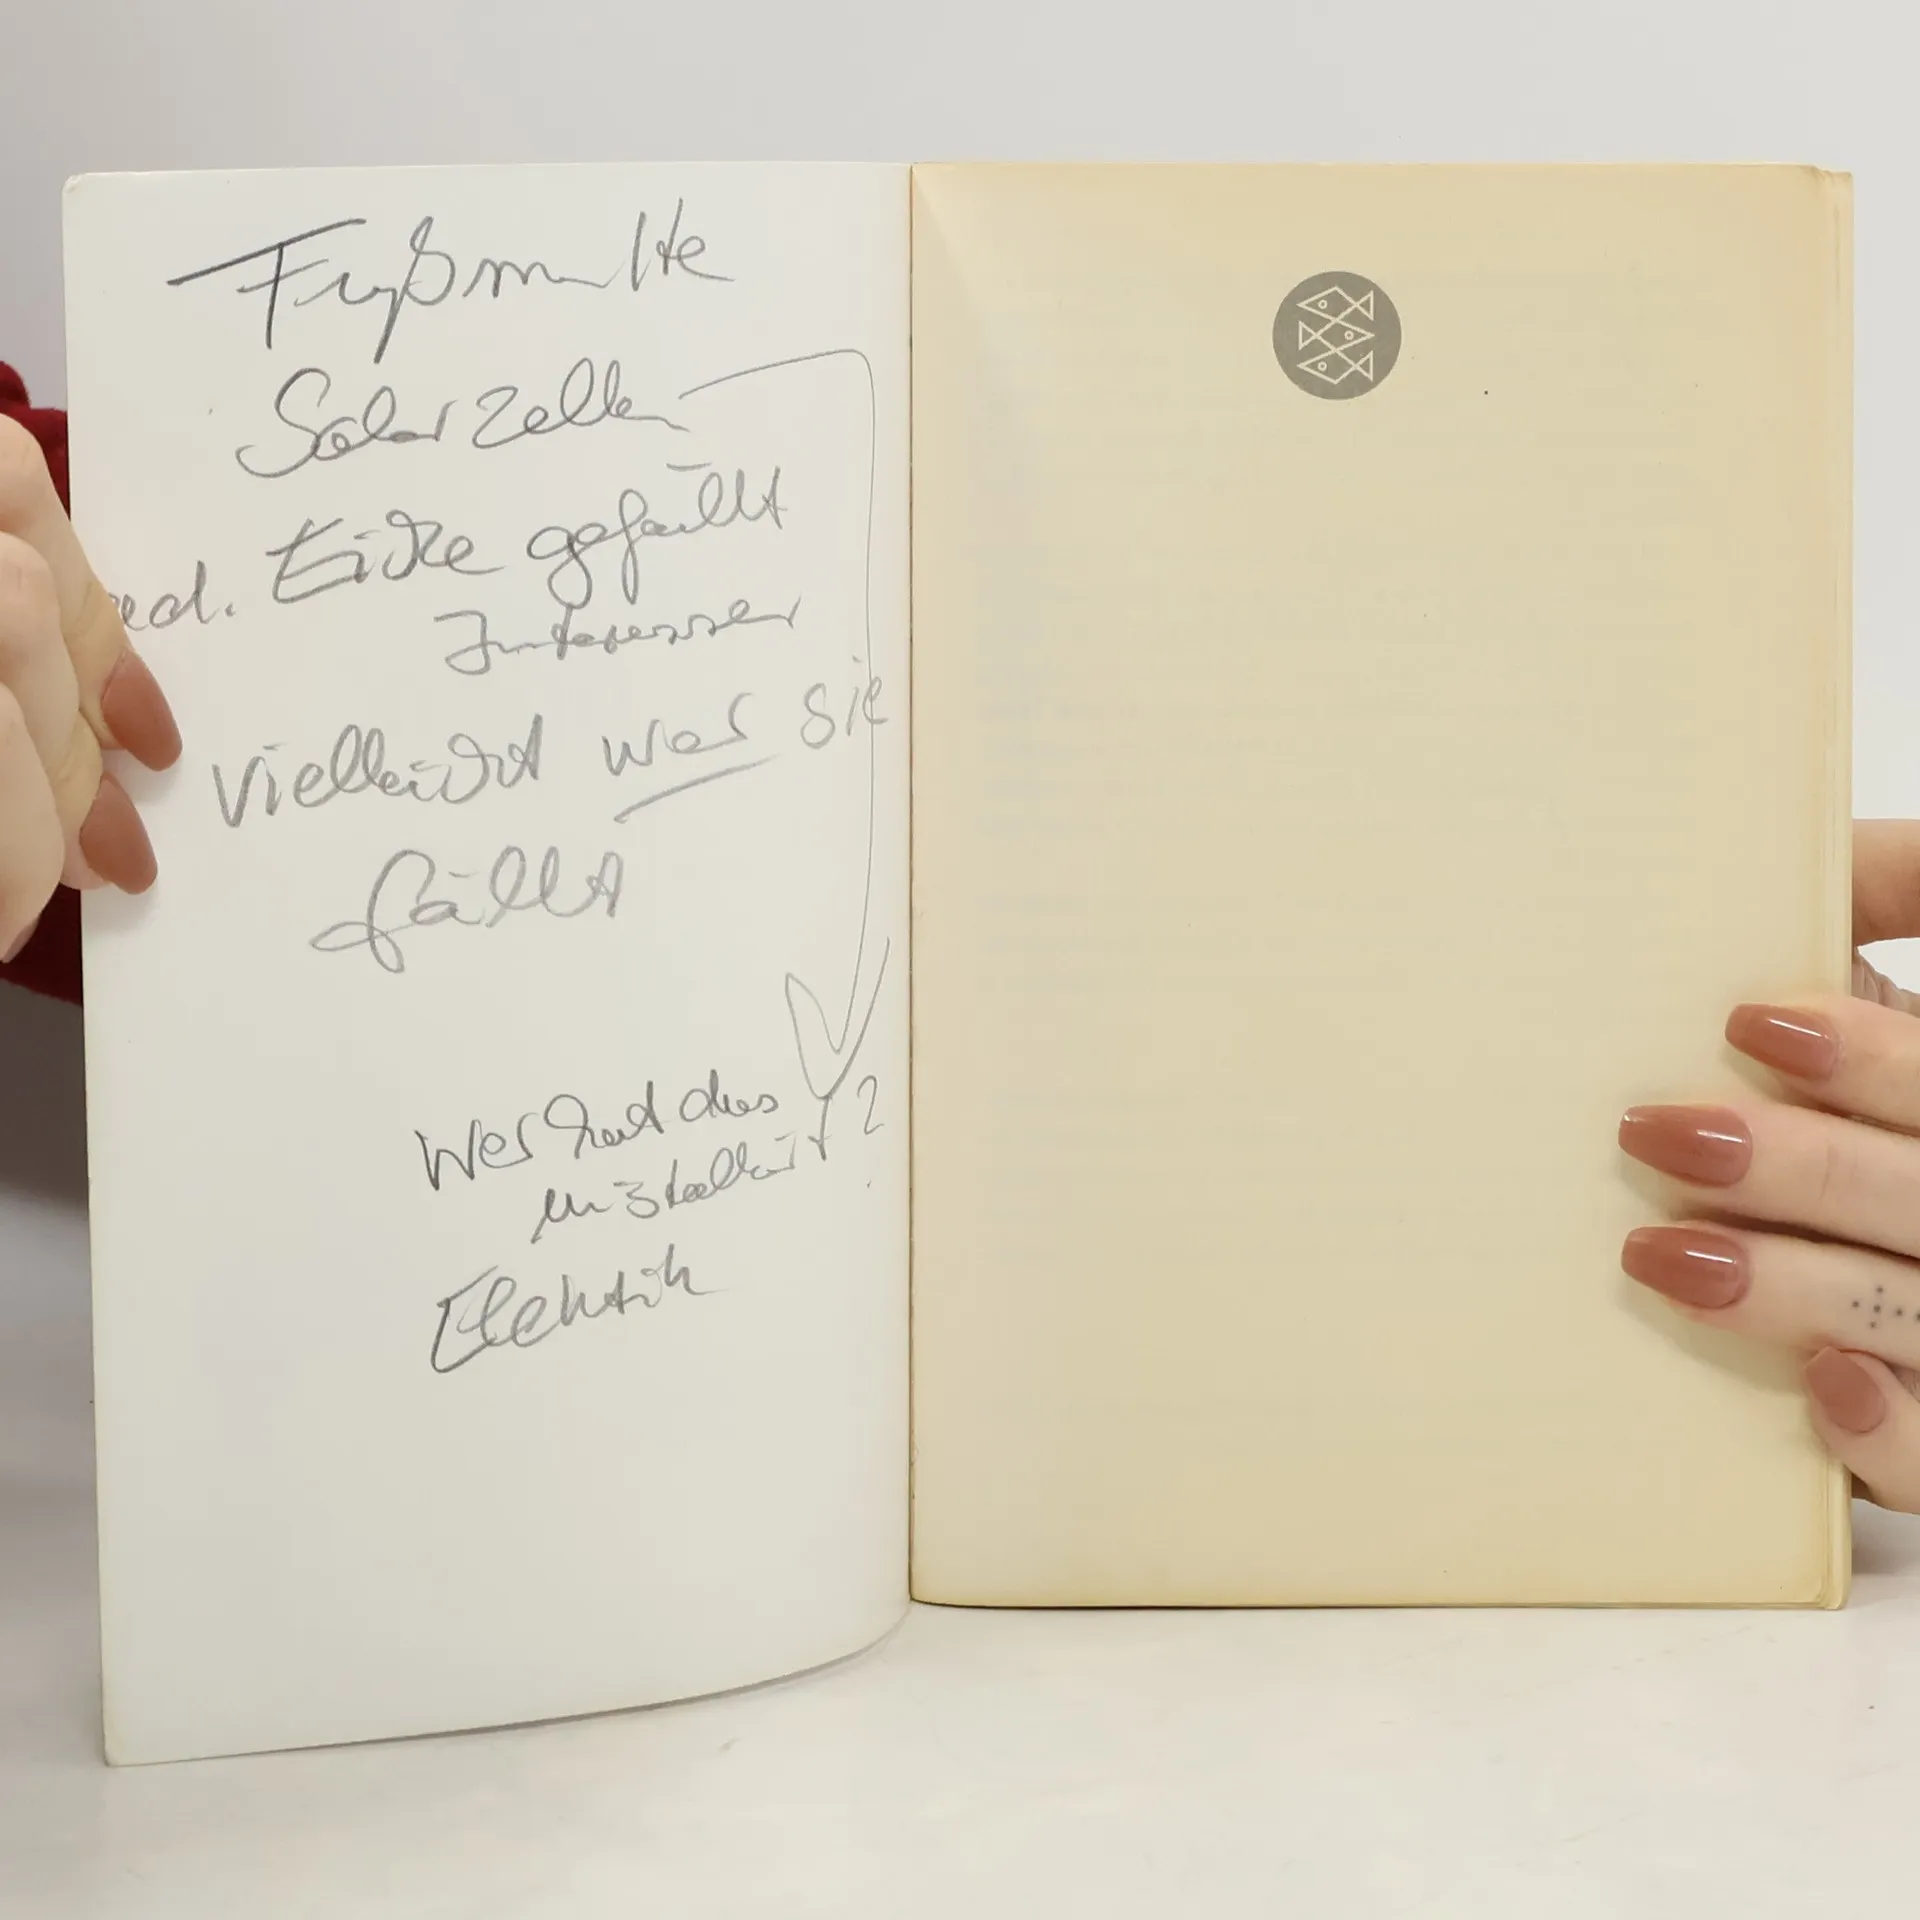 Fußmatte
Solarzellen
Eiche gefällt
Interesse
Vielleicht wer sie
fällt
Wer hat das
installiert?
Elektrik